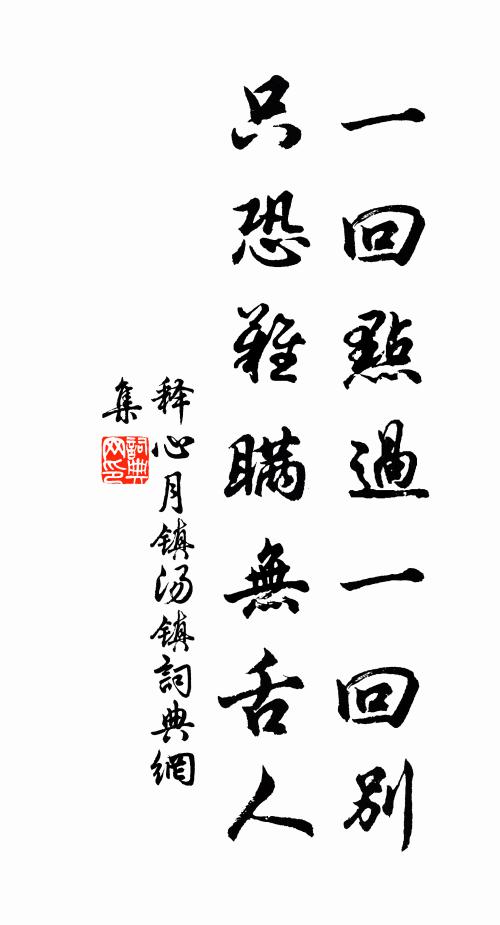 一回點過一回別
只恐難瞞無舌人
释心月镇汤镇詞典網
集
詞典
网印